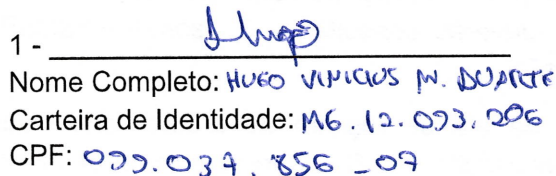 1 - Hugo
Nome Completo: HUGO VINICIUS M. DUARTE
Carteira de Identidade: MG.12.093.206
CPF: 099.037.856-07